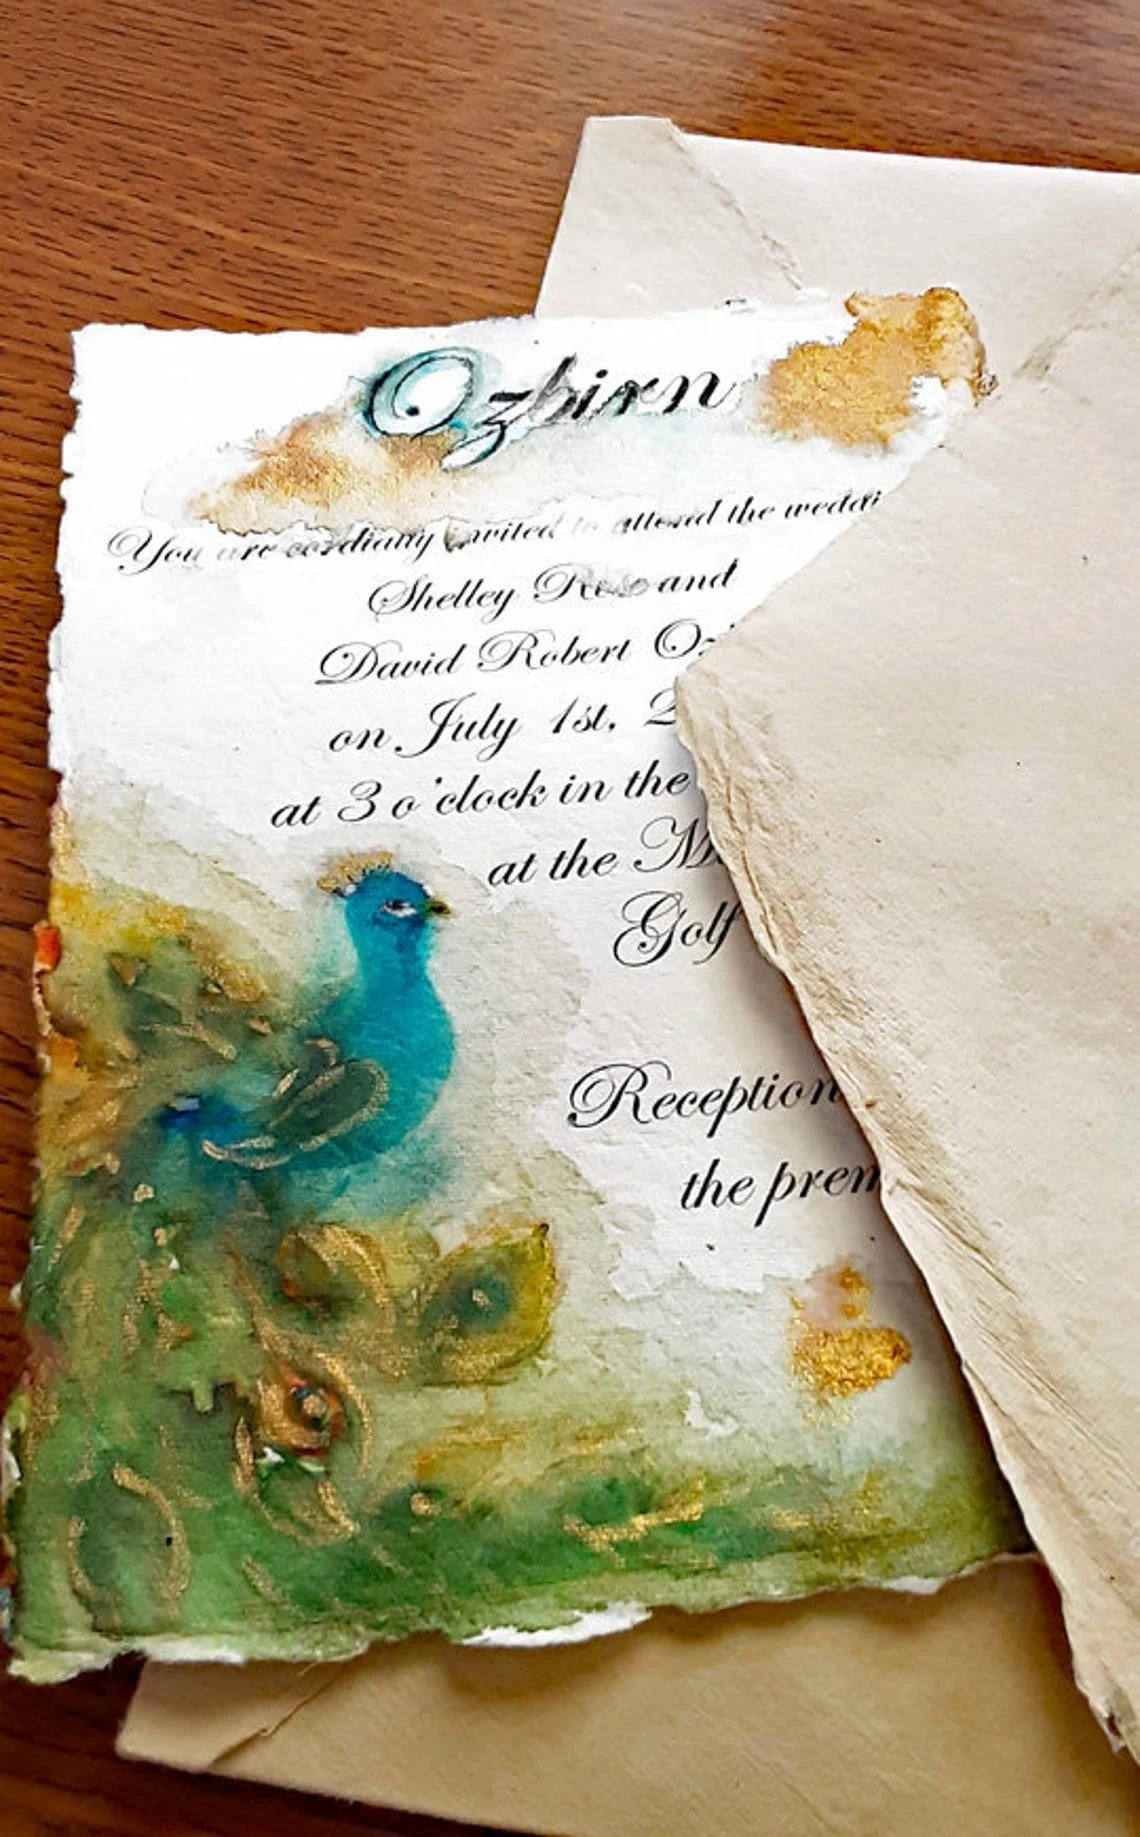 Ozbirn
You are cordially invited to attend the weddi
Shelley Rose and
David Robert Oz
on July 1st, 2
at 3 o'clock in the
at the M
Golf
Reception
the prem